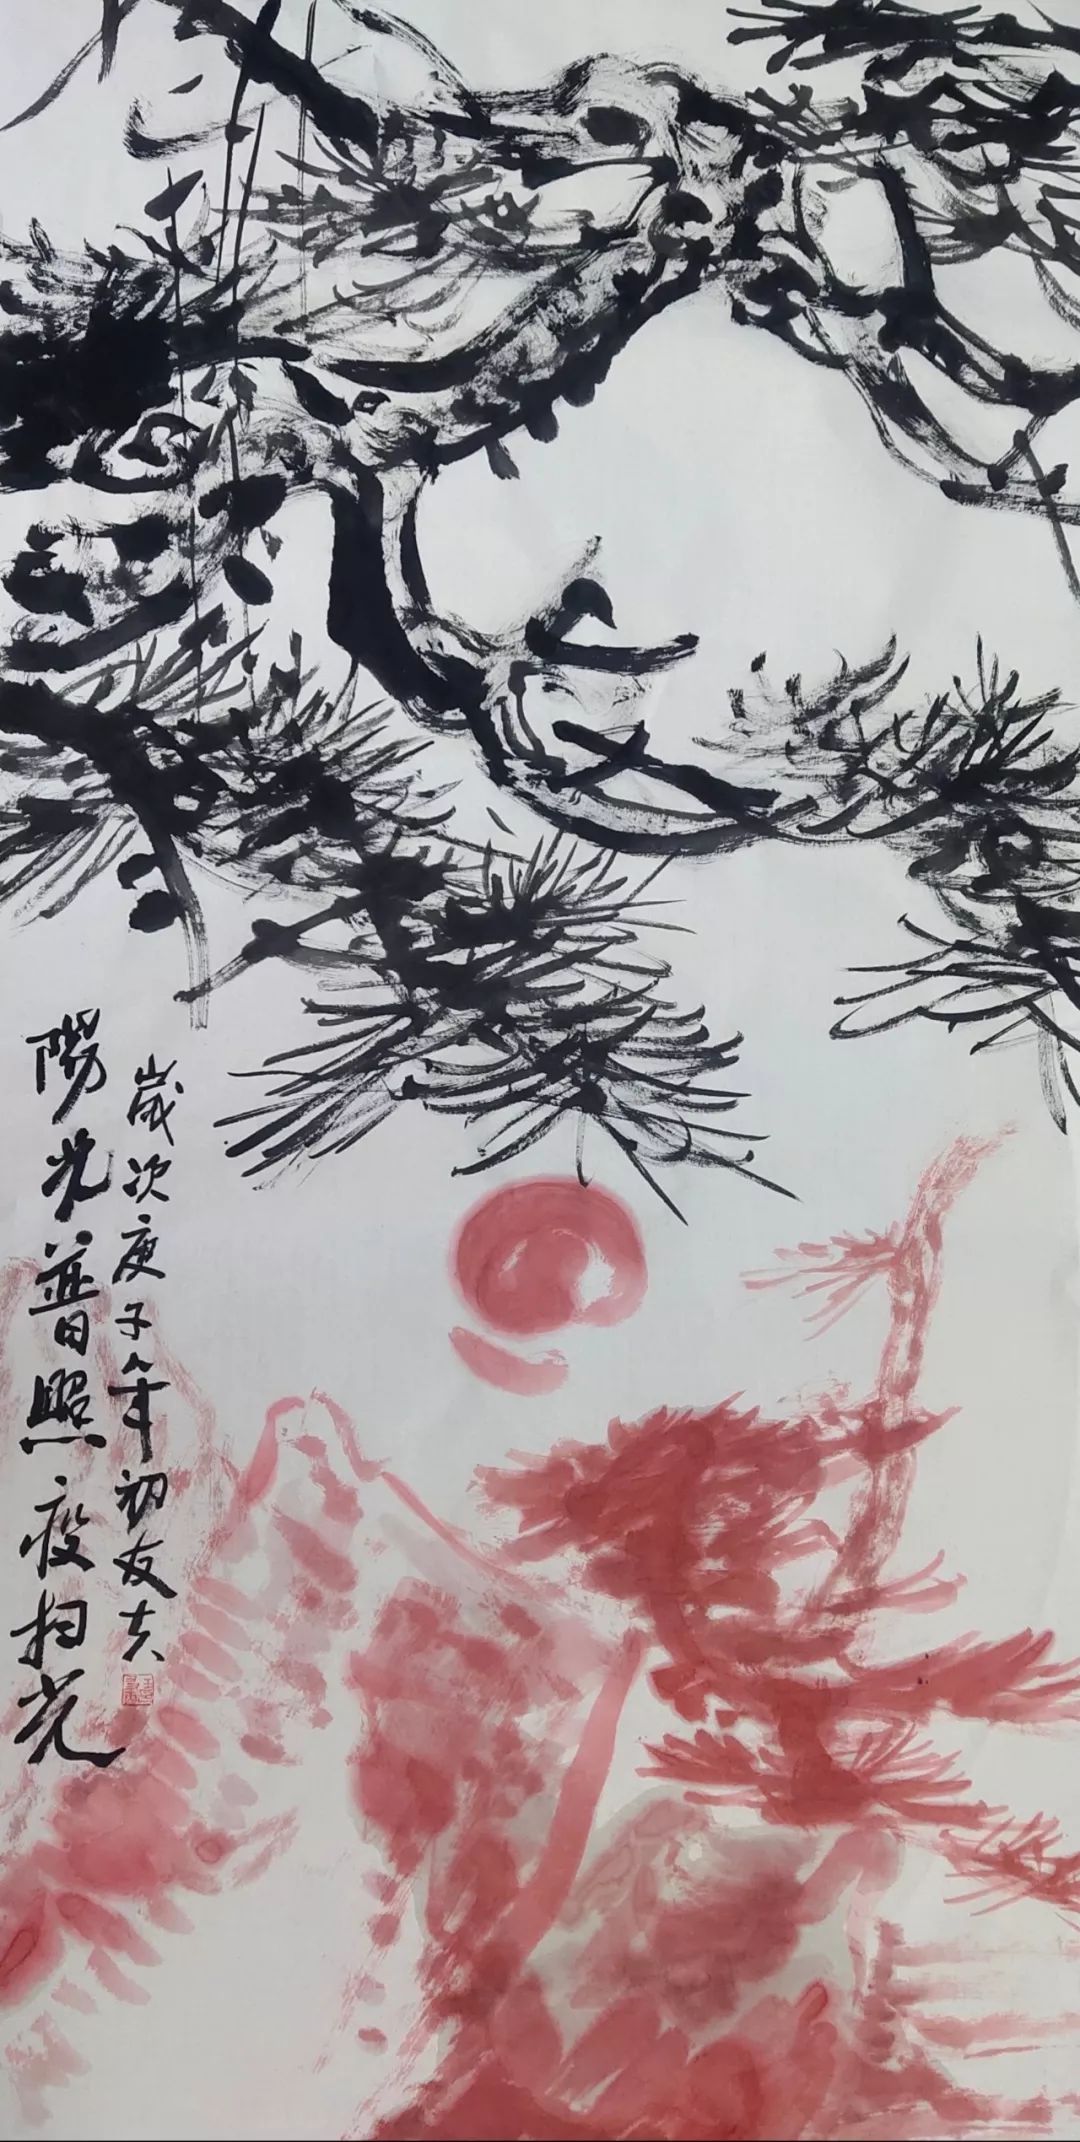 陽光普照疫扫光
歲次庚子年初友